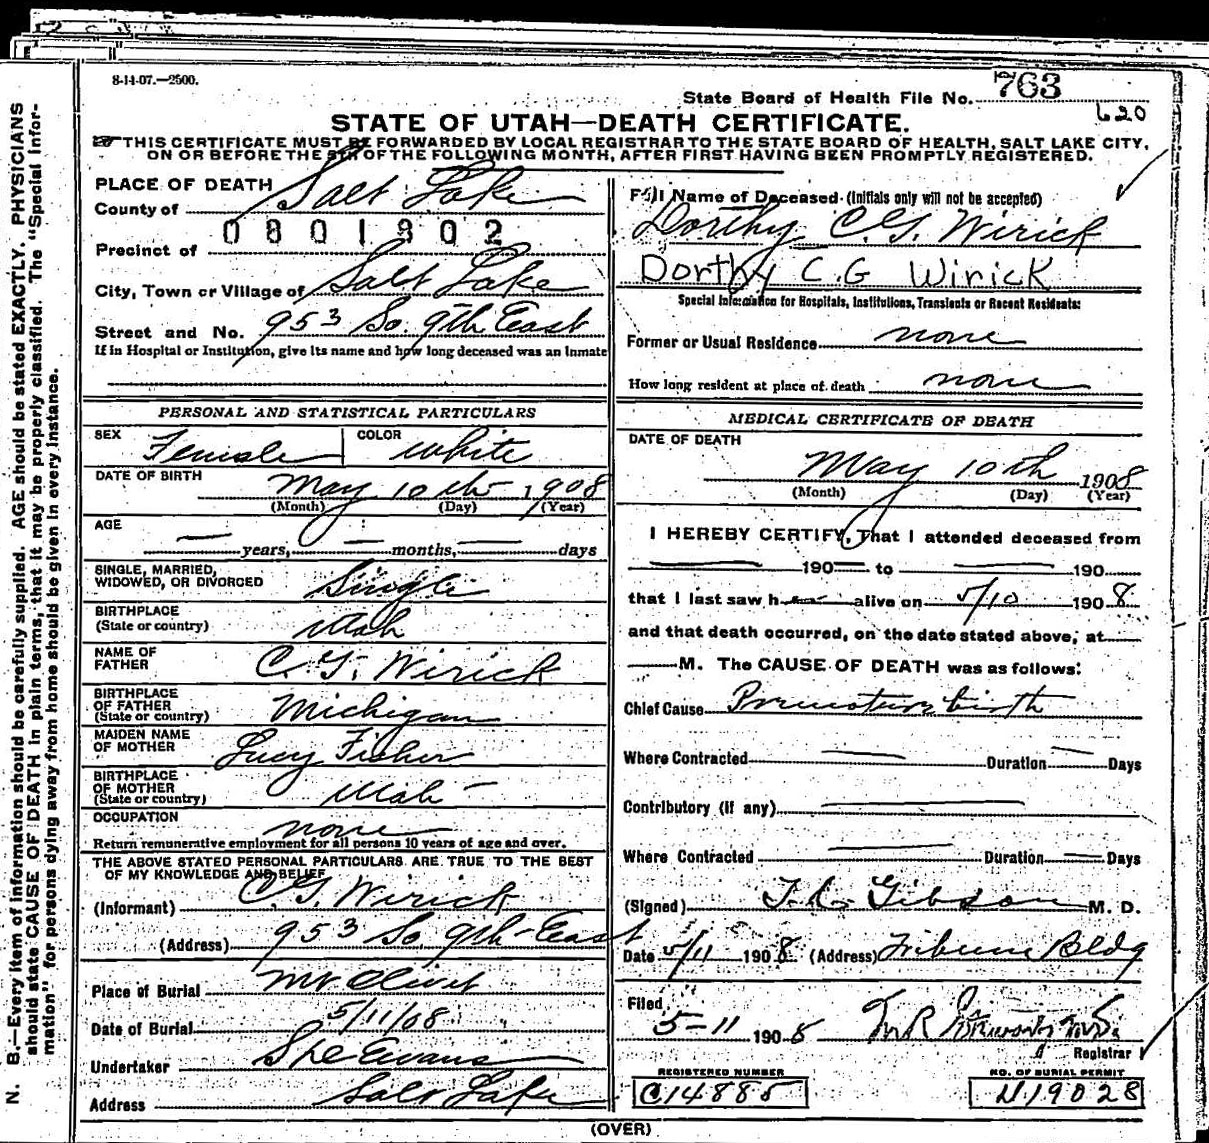 8-14-07.—2500.
State Board of Health File No. 763
620
STATE OF UTAH—DEATH CERTIFICATE.
THIS CERTIFICATE MUST BE FORWARDED BY LOCAL REGISTRAR TO THE STATE BOARD OF HEALTH, SALT LAKE CITY,
ON OR BEFORE THE 5TH OF THE FOLLOWING MONTH, AFTER FIRST HAVING BEEN PROMPTLY REGISTERED.
PLACE OF DEATH
County of Salt Lake
0801902
Precinct of
City, Town or Village of Salt Lake
Street and No. 953 So. 9th East
If in Hospital or Institution, give its name and how long deceased was an inmate
PERSONAL AND STATISTICAL PARTICULARS
SEX Female COLOR White
DATE OF BIRTH May 10th 1908
(Month) (Day) (Year)
AGE
— years, — months, — days
SINGLE, MARRIED,
WIDOWED, OR DIVORCED Single
BIRTHPLACE
(State or country) Utah
NAME OF
FATHER C. G. Wirick
BIRTHPLACE
OF FATHER
(State or country) Michigan
MAIDEN NAME
OF MOTHER Lucy Fisher
BIRTHPLACE
OF MOTHER
(State or country) Utah
OCCUPATION none
Return remunerative employment for all persons 10 years of age and over.
THE ABOVE STATED PERSONAL PARTICULARS ARE TRUE TO THE BEST
OF MY KNOWLEDGE AND BELIEF
(Informant) C. G. Wirick
(Address) 953 So. 9th East
Place of Burial Mt Olivet
Date of Burial 5/11/08
Undertaker Evans
Address Salt Lake
Full Name of Deceased (Initials only will not be accepted)
Dorthy C. G. Wirick
Dorthy C. G Wirick
Special Information for Hospitals, Institutions, Transients or Recent Residents:
Former or Usual Residence none
How long resident at place of death none
MEDICAL CERTIFICATE OF DEATH
DATE OF DEATH
May 10th 1908
(Month) (Day) (Year)
I HEREBY CERTIFY, That I attended deceased from
— 190— to — 190
that I last saw h— alive on 5/10 1908
and that death occurred, on the date stated above, at
— M. The CAUSE OF DEATH was as follows:
Chief Cause Premature birth
Where Contracted — Duration — Days
Contributory (if any) —
Where Contracted — Duration — Days
(Signed) Gibson M. D.
Date 5/11 1908 (Address) Tribune Bldg
Filed
5-11 1908 M R
Registrar
REGISTERED NUMBER
C14885
NO. OF BURIAL PERMIT
N19028
(OVER)
N. B.—Every item of information should be carefully supplied. AGE should be stated EXACTLY. PHYSICIANS
should state CAUSE OF DEATH in plain terms, that it may be properly classified. The "Special Infor-
mation" for persons dying away from home should be given in every instance.